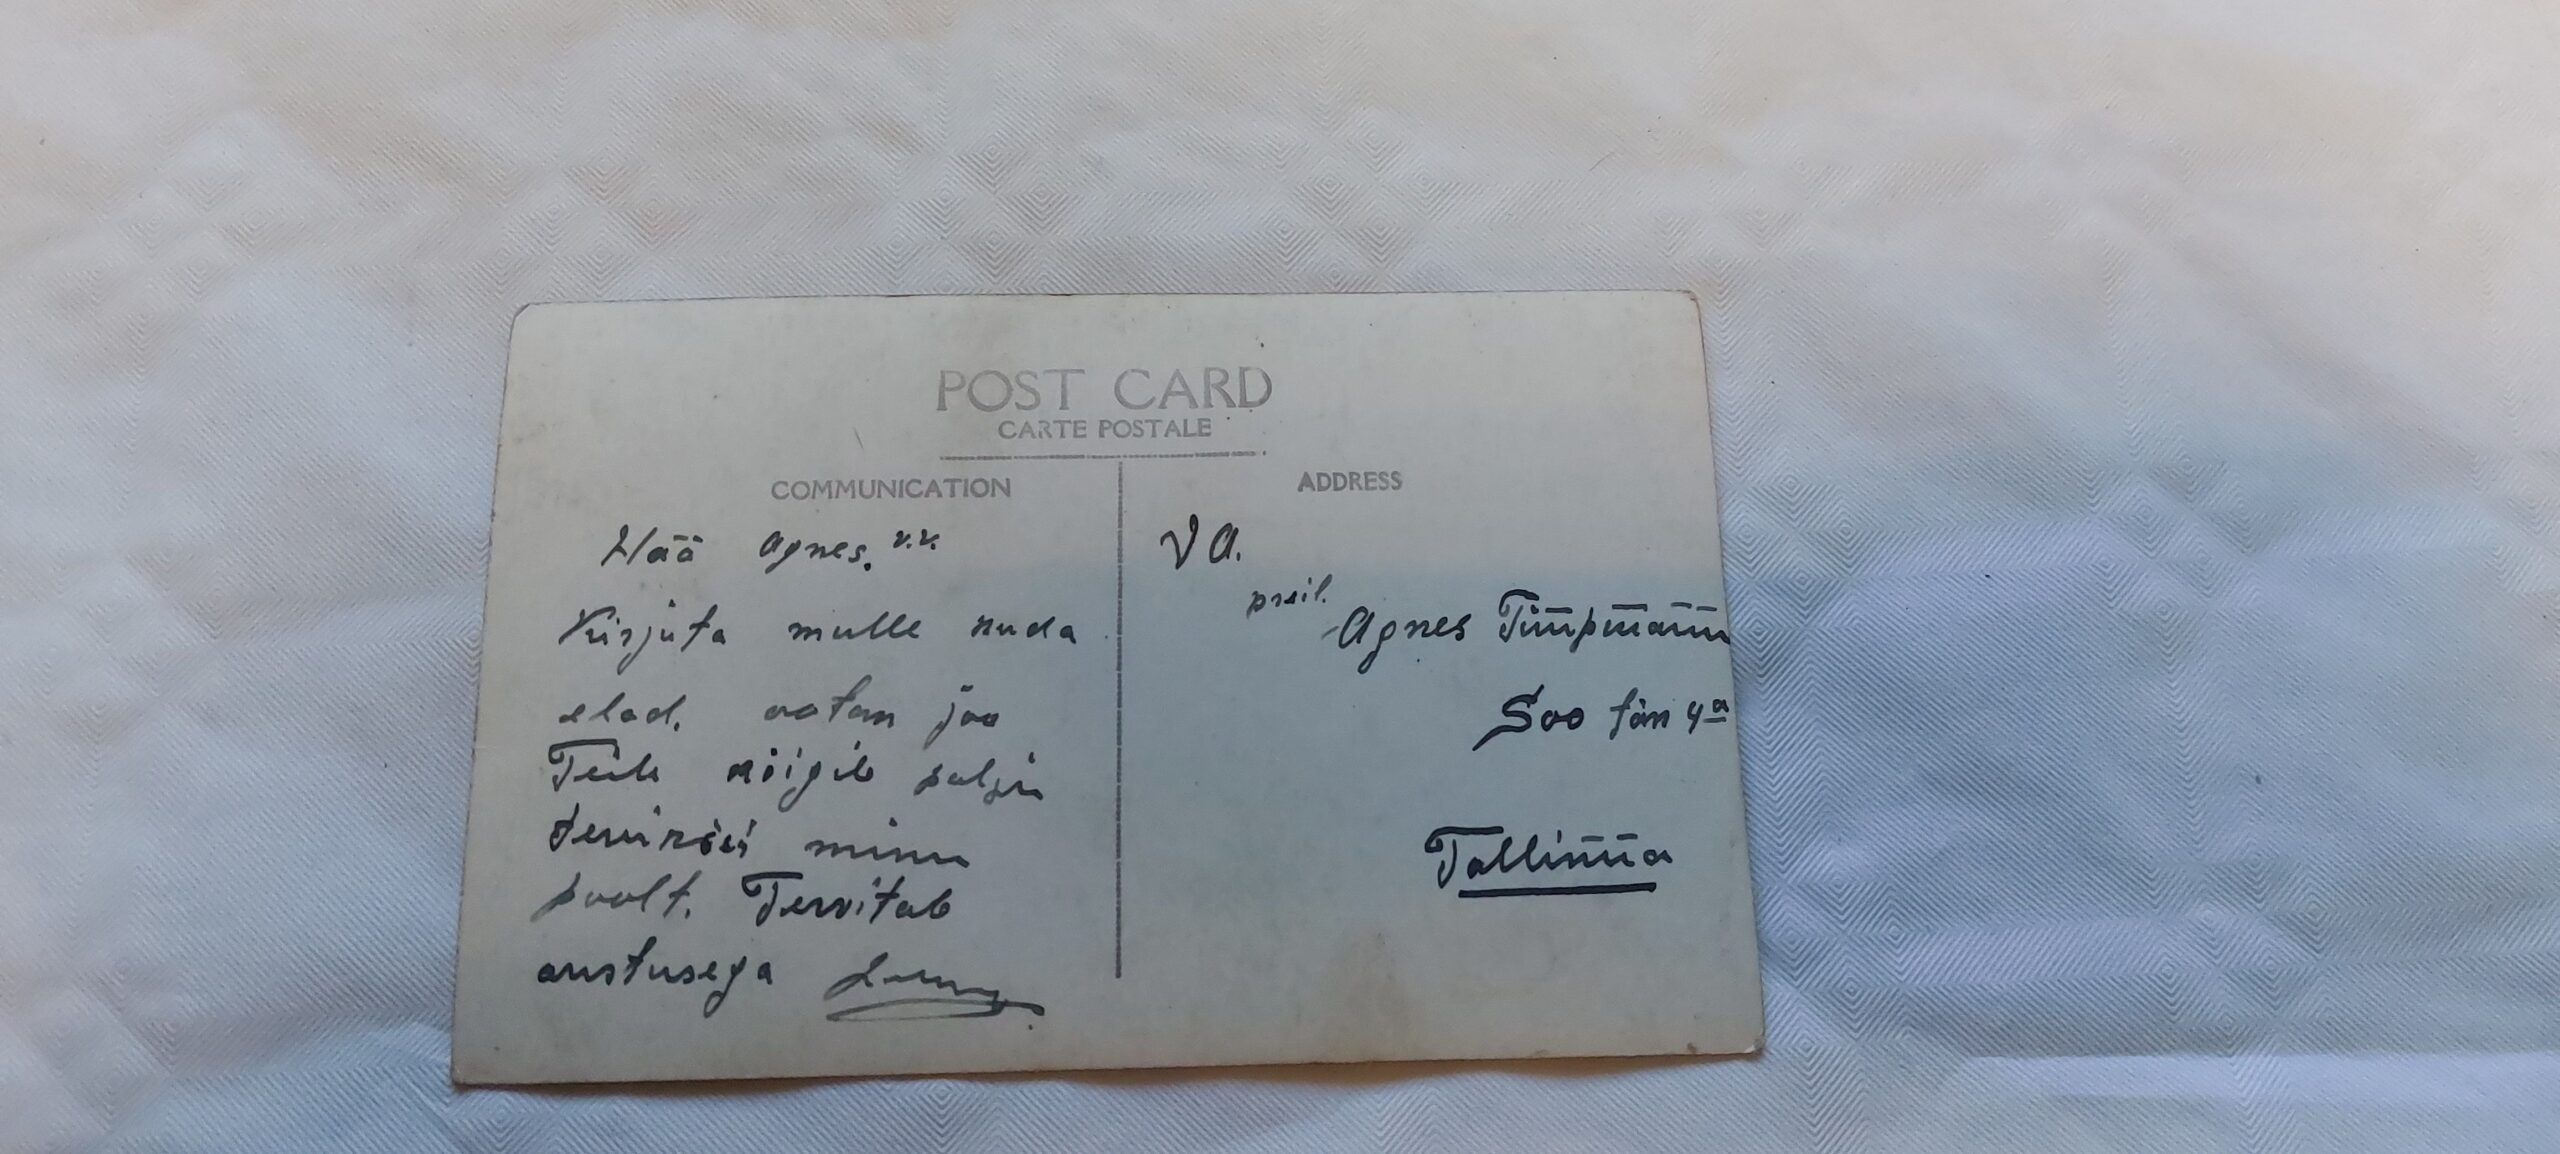 POST CARD
CARTE POSTALE
COMMUNICATION
Hää Agnes. v.v.
Kirjuta mulle kuda
elad. ootan joo
Teile kõigile palju
tervisei minu
poolt. Tervitab
austusega
ADDRESS
V A.
preil.
Agnes Timpmann
Soo tän 4a
Tallinna